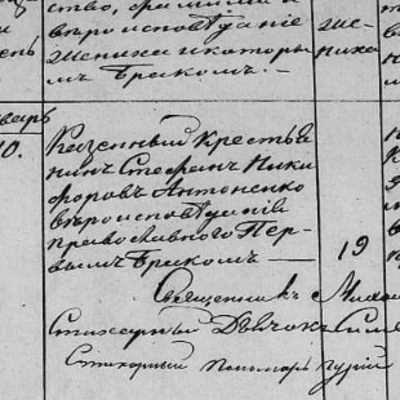 ство, фамилия и
вѣроисповѣданіе
жениха и которы
мъ бракомъ. —
же-
ниха
варь
10.
Казенный крестья
нинъ Стефанъ Ники
форовъ Антоненко
вѣроисповѣданія
православнаго Пер-
вымъ бракомъ —
19
Священникъ
Стихарный Дьячокъ
Стихарный пономарь Гурій